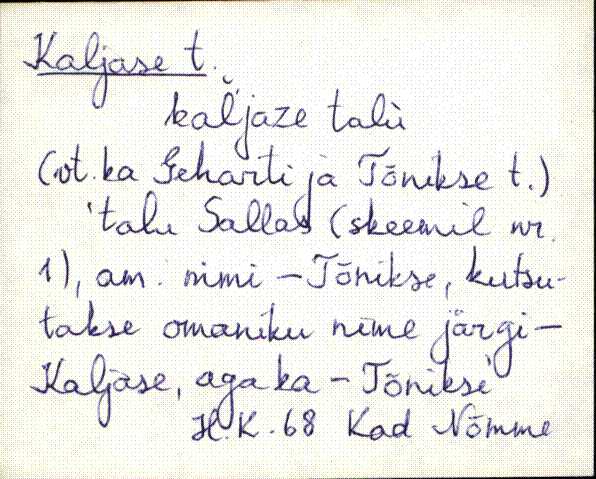 Kaljase t.
kaľjaze talu
(vt. ka Geharti ja Tõnikse t.)
'talu Sallas (skeemil nr.
1), am. nimi – Tõnikse, kutsu-
takse omaniku nime järgi –
Kaljase, aga ka – Tõnikse'
H.K. 68 Kad Nõmme